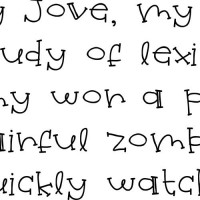 y Jove, my
tudy of lexi
hy won a p
ainful zomb
uickly watch